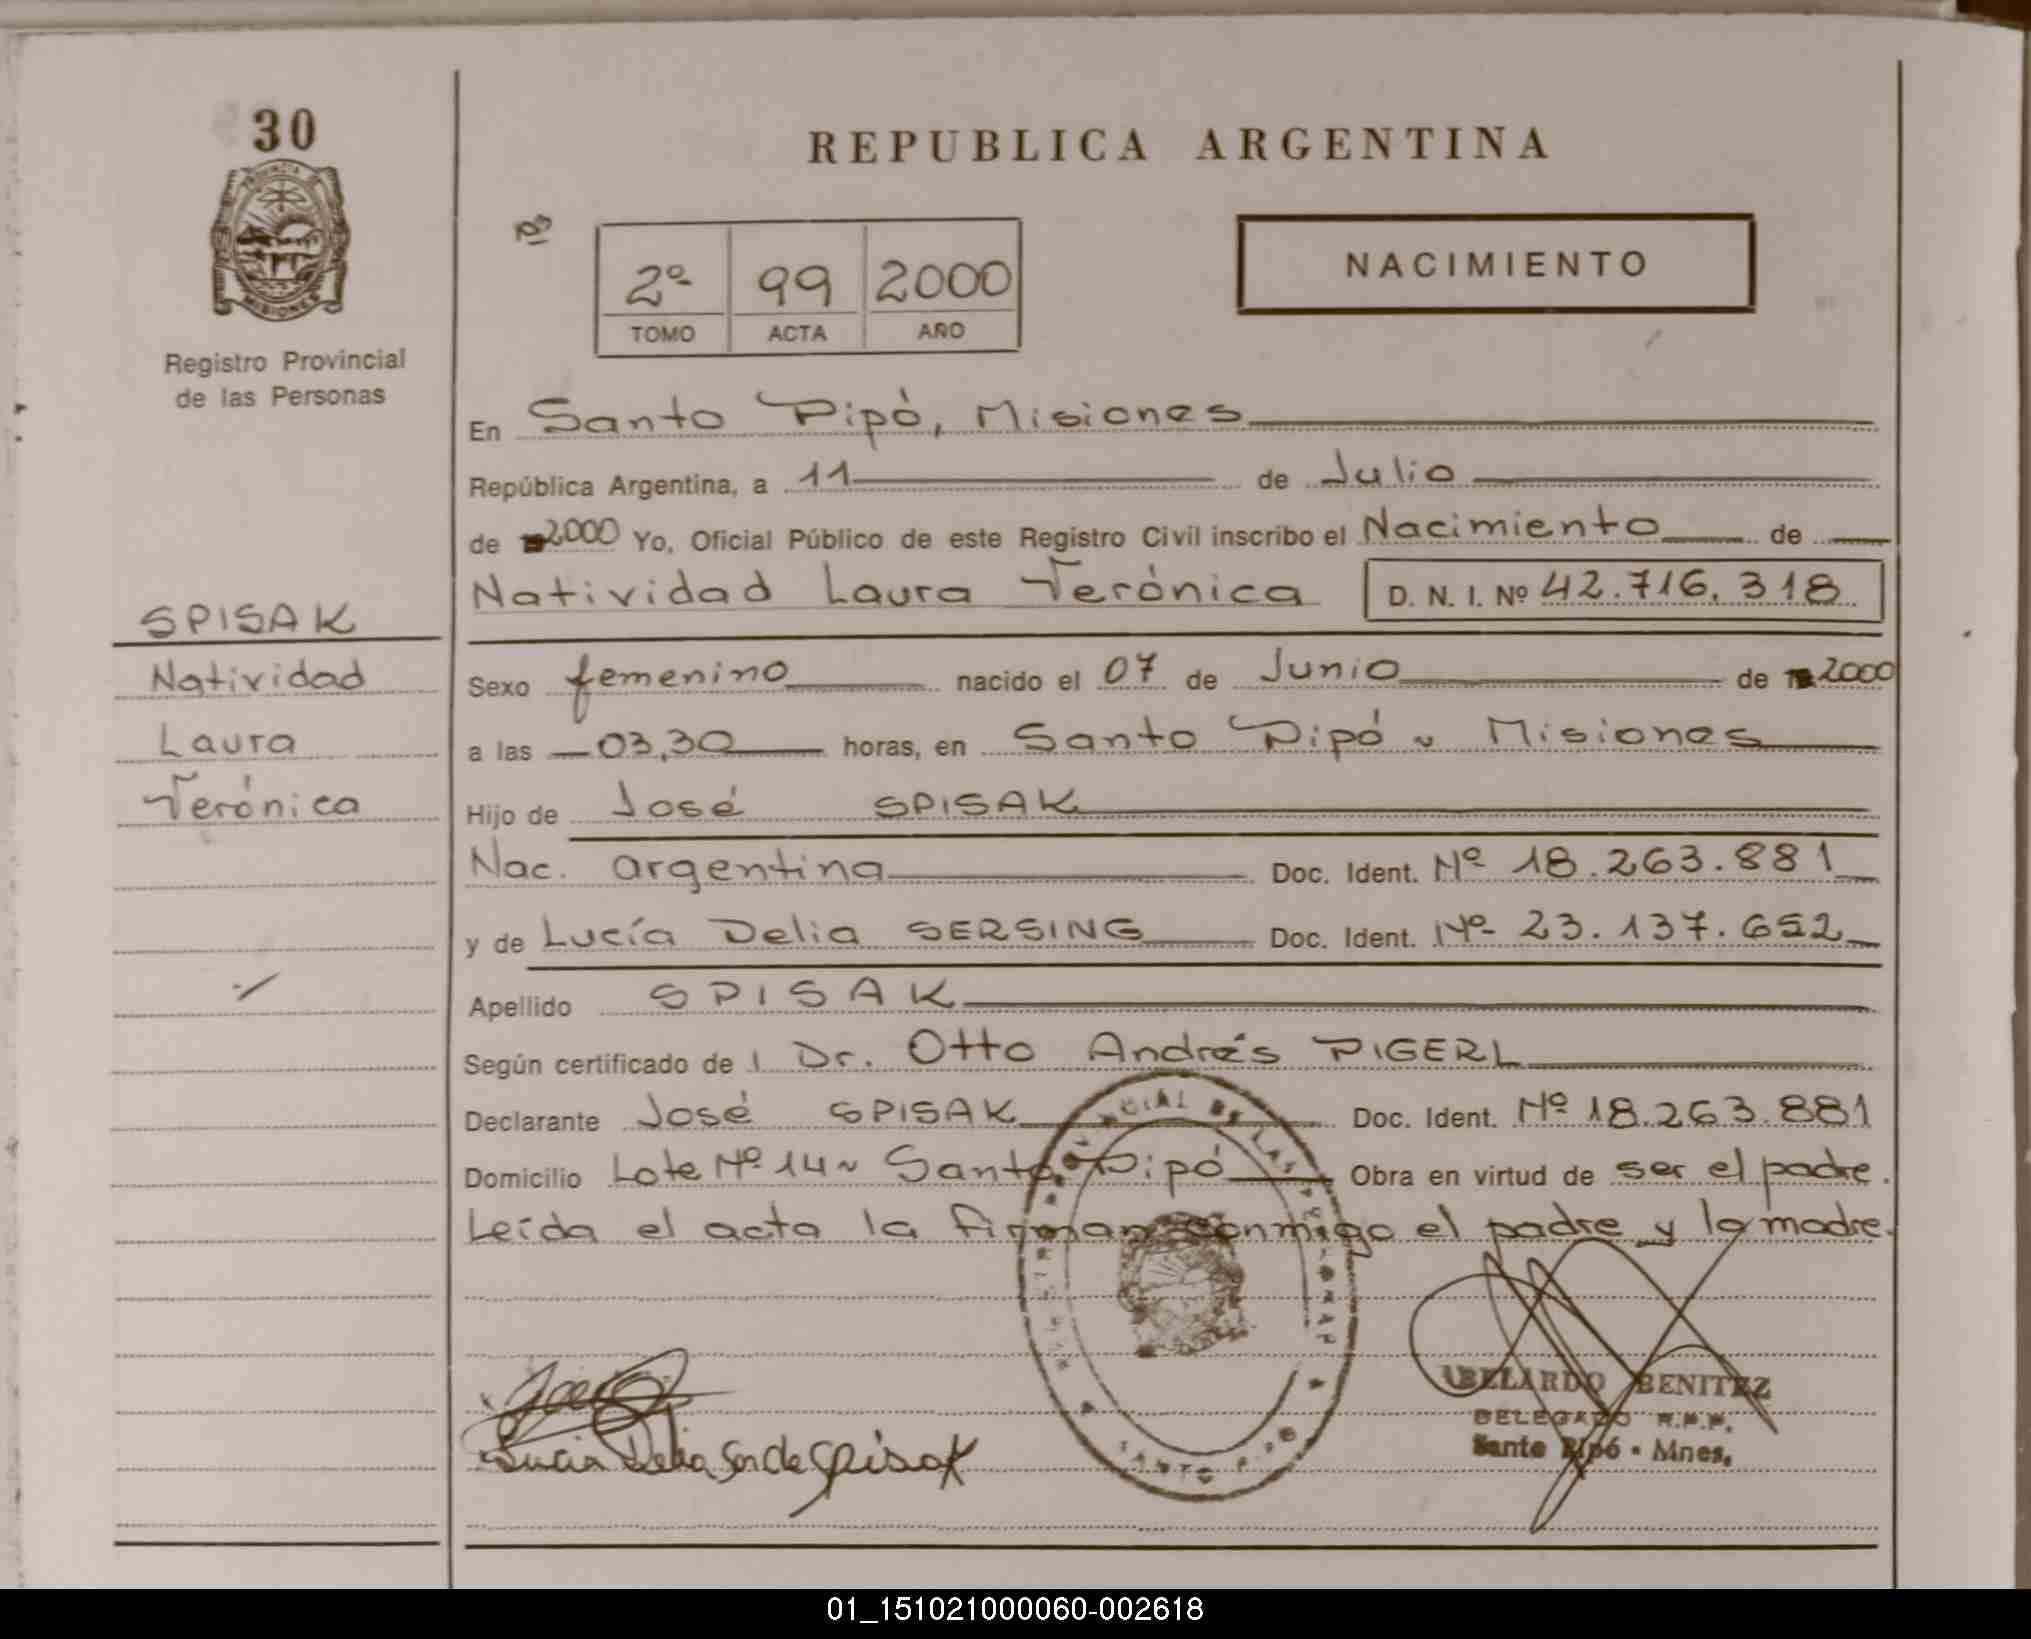 30
REPUBLICA ARGENTINA
2º 99 2000
TOMO ACTA AÑO
NACIMIENTO
PROVINCIA DE
MISIONES
Registro Provincial
de las Personas
En Santo Pipó, Misiones
República Argentina, a 11 de Julio
de 2000 Yo, Oficial Público de este Registro Civil inscribo el Nacimiento de
Natividad Laura Verónica D. N. I. Nº 42.716.318
SPISAK
Natividad
Laura
Verónica
Sexo femenino nacido el 07 de Junio de 2000
a las 03,30 horas, en Santo Pipó ~ Misiones
Hijo de José SPISAK
Nac. argentina Doc. Ident. Nº 18.263.881
y de Lucía Delia SERSING Doc. Ident. Nº 23.137.652
Apellido SPISAK
Según certificado de l Dr. Otto Andrés PIGERL
Declarante José SPISAK Doc. Ident. Nº 18.263.881
Domicilio Lote Nº 14 ~ Santo Pipó Obra en virtud de ser el padre.
Leída el acta la firman conmigo el padre y la madre.
ABELARDO BENITEZ
DELEGADO R.P.P.
Santo Pipó - Mnes.
Lucia Delia Ser de Spisak
SANTO PIPO
01_151021000060-002618